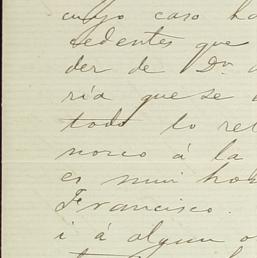 cuyo caso ha
cedentes que
der de Dn.
ría que se
todo lo rel
nozco á la
es mui ho
Francisco.
i á algun o